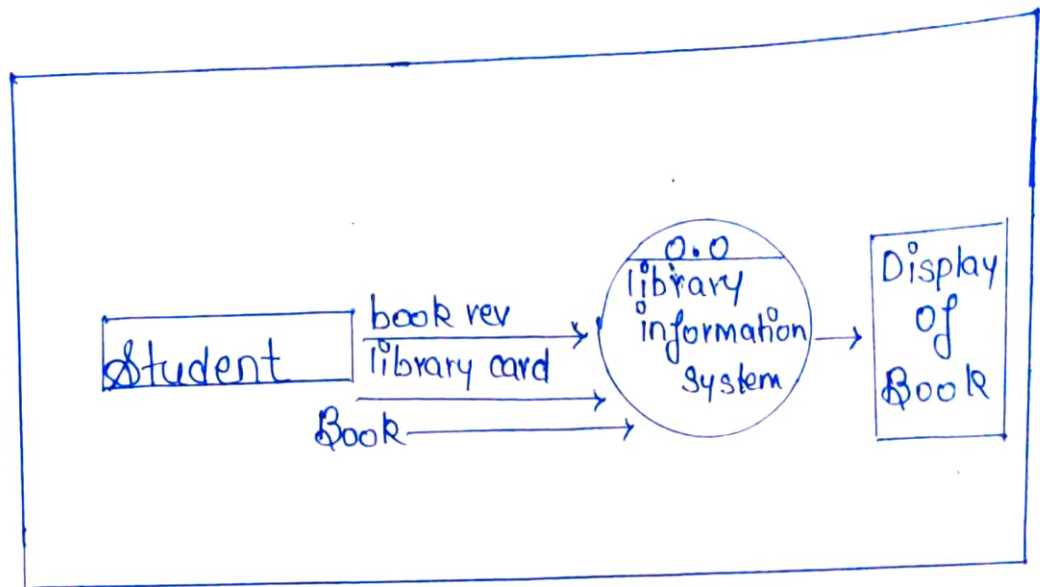 Student
book rev
library card
Book
0.0
library
information
system
Display
of
Book